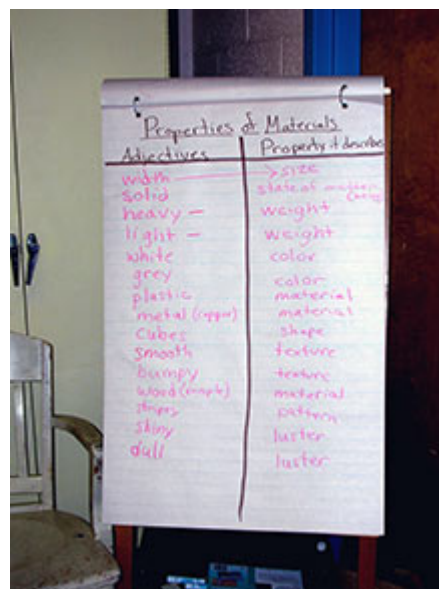 Properties of Materials
Adjectives Property it describes
width size
solid state of matter
heavy – weight
light – weight
white color
grey color
plastic material
metal (copper) material
cubes shape
smooth texture
bumpy texture
wood (maple) material
stripes pattern
shiny luster
dull luster